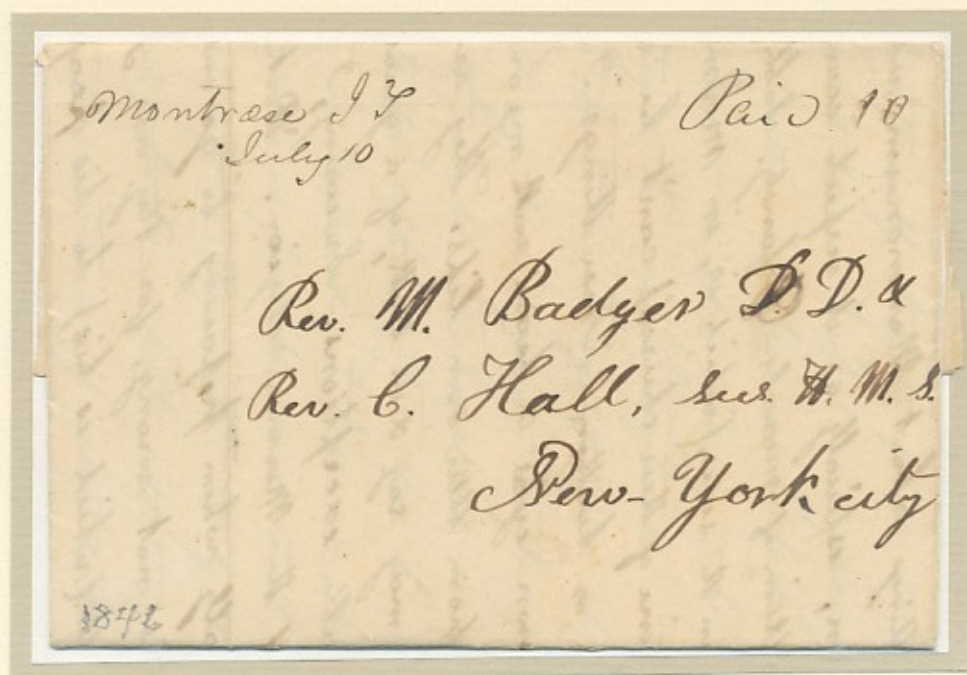 Montrose I T
July 10
Paid 10
Rev. M. Badger D. D. &
Rev. C. Hall, Secs. H. M. S.
New-York city